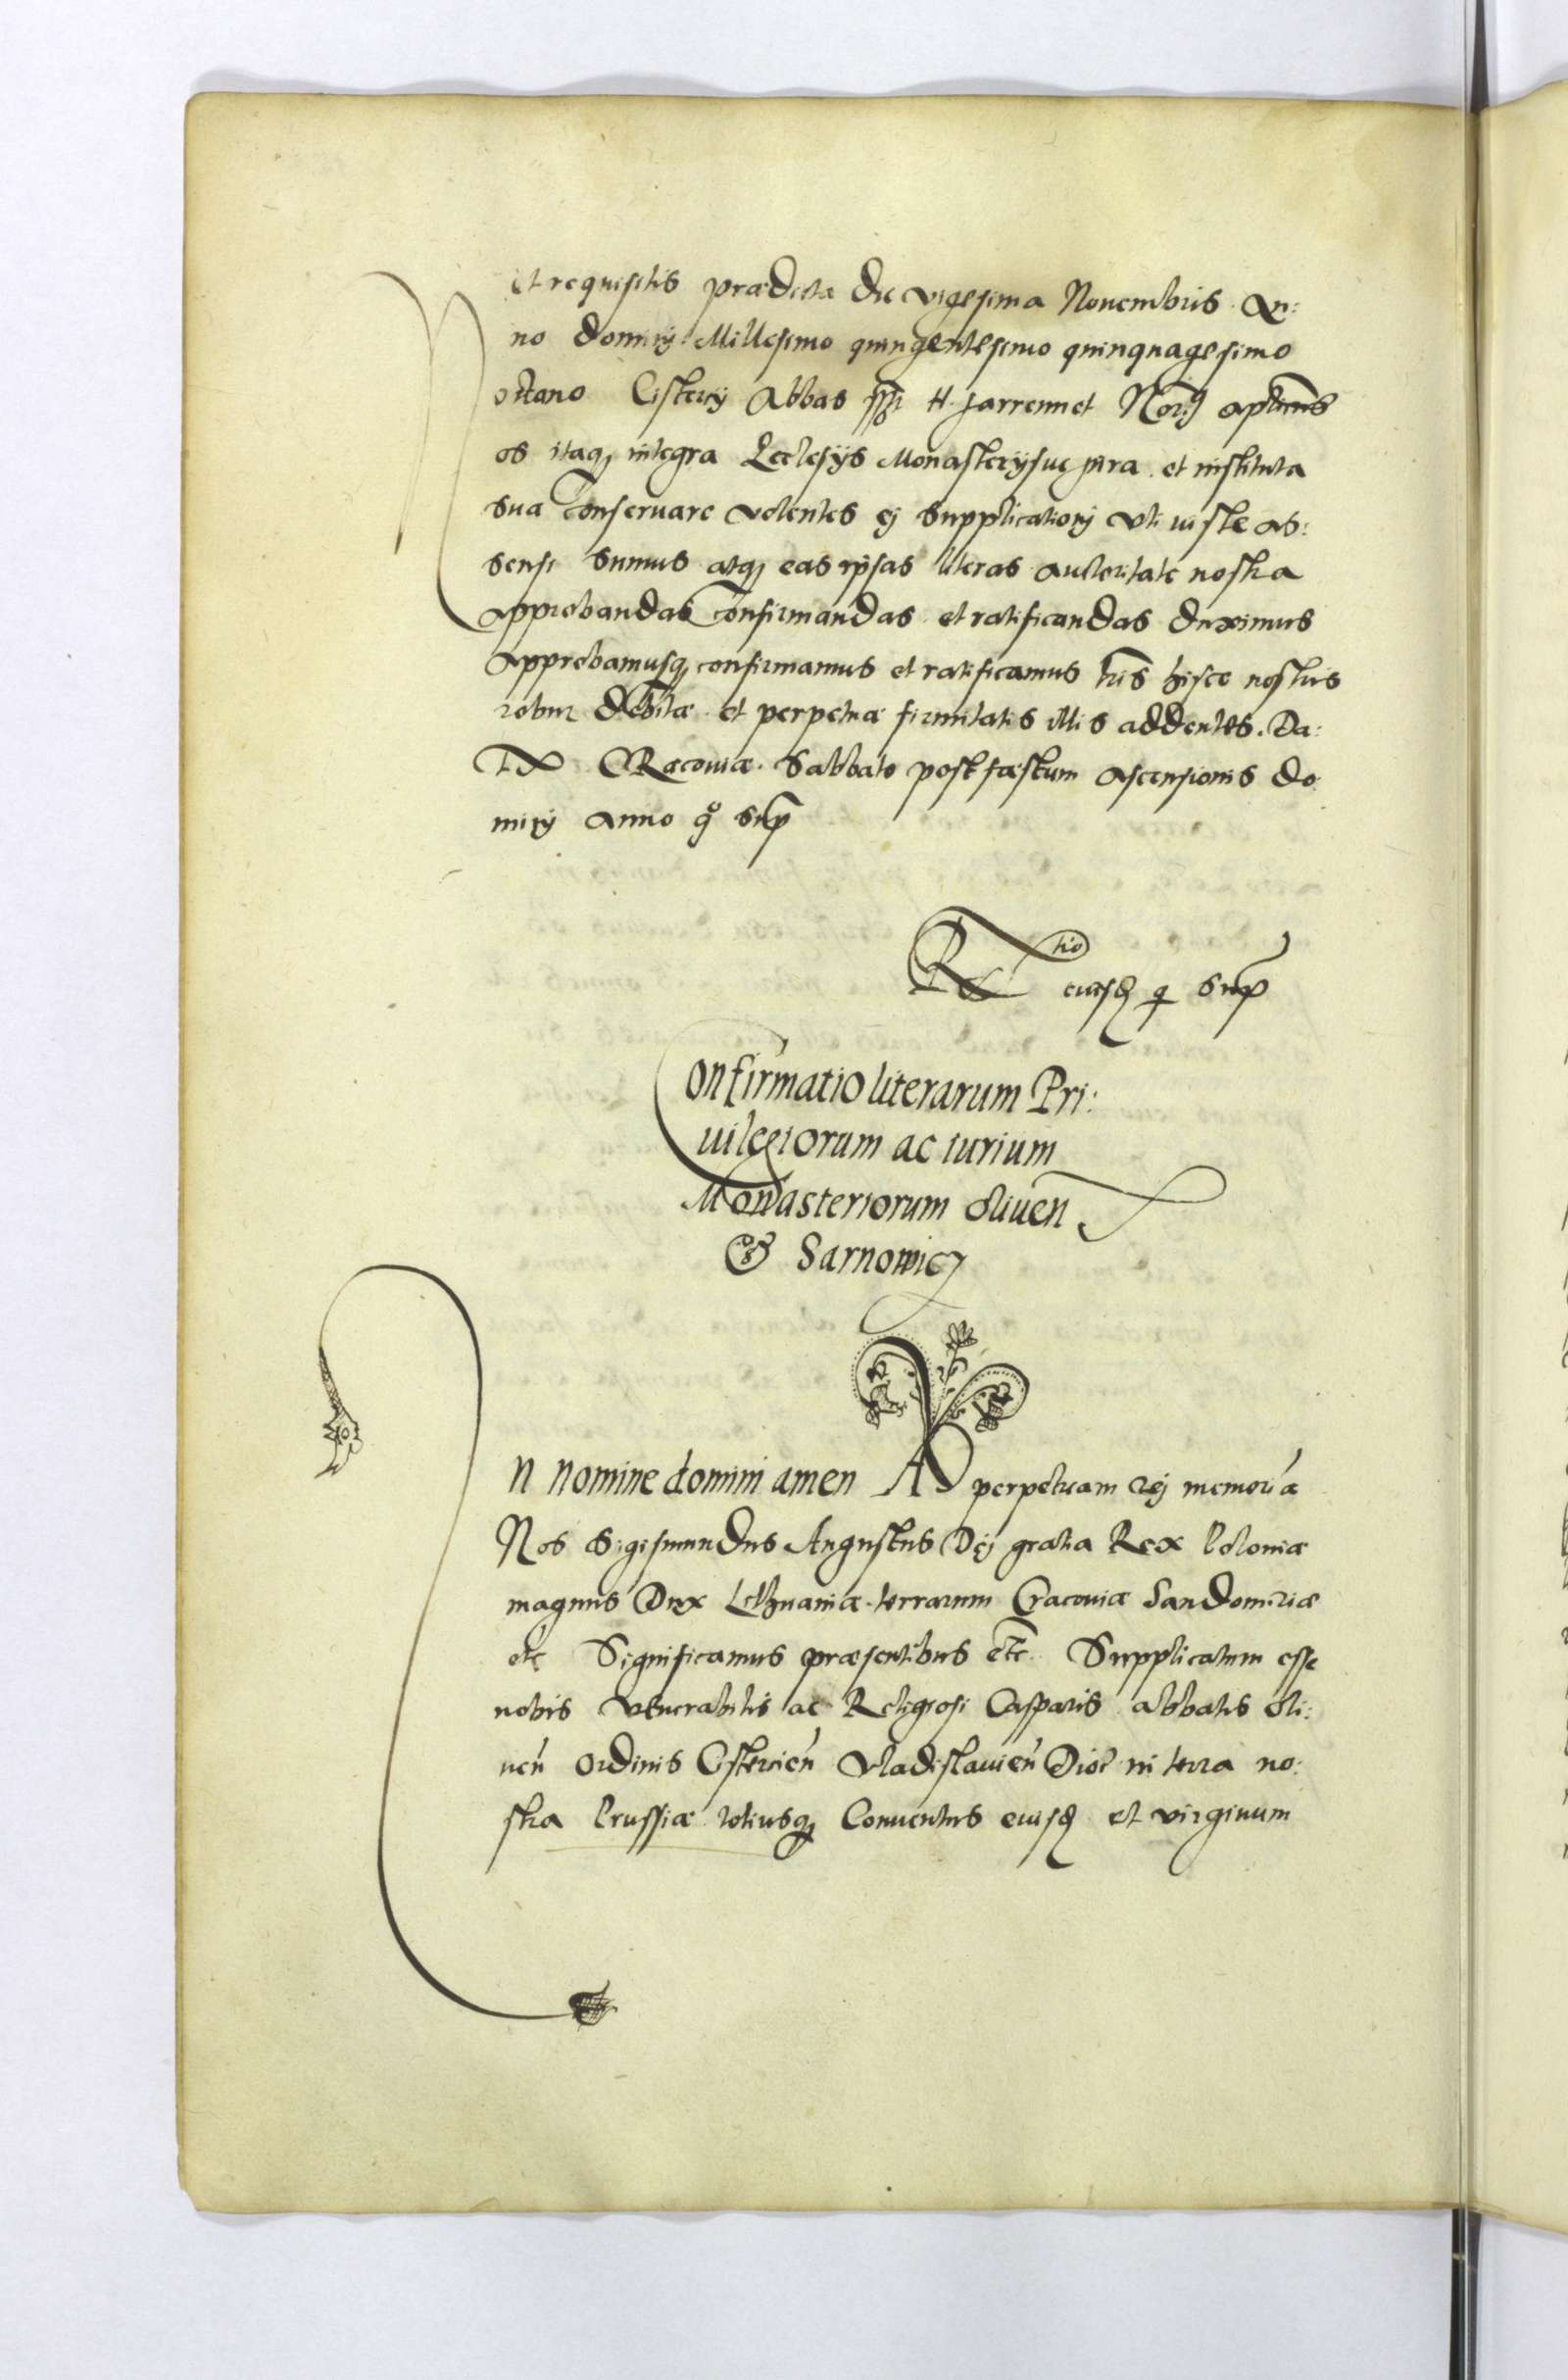 Et requisitis prædicta die vigesima Novembris An:
no dominj Millesimo quingentesimo quinquagesimo
octavo Cistercij Abbas sspt H. Jarrennet Nor9 aplicus
Nos itaq3 integra Ecclesijs Monasterijsue iura et instituta
sua Conservare volentes ej supplicationj vti iuste as:
sensi sumus atq3 eas ipsas literas auctoritate nostra
approbandas Confirmandas et ratificandas duximus
Approbamusq3 confirmamus et ratificamus lris hisce nostris
robur debitæ et perpetuæ firmitatis illis addentes. Da:
tæ CRacoviæ Sabbato post fæstum ascensionis do
minj Anno qo sup
Rtio eiusd q sup
Confirmatio literarum Pri:
uilegiorum ac iurium
Monasteriorum oliuen
Et Sarnowicz
In nomine domini amen AD perpetuam rej memoria
Nos Sigismundus Augustus Dej gratia Rex Poloniæ
magnus Dux Lithuaniæ terrarum Cracoviæ Sandomiriæ
etc Significamus præsentibus etc. Supplicatum esse
nobis venerabilis ac Religiosi Casparis abbatis oli:
uen ordinis Cistercien Vladislauien Dioc in terra no:
stra Prussiæ totiusq3 Conventus eiusd et virginum